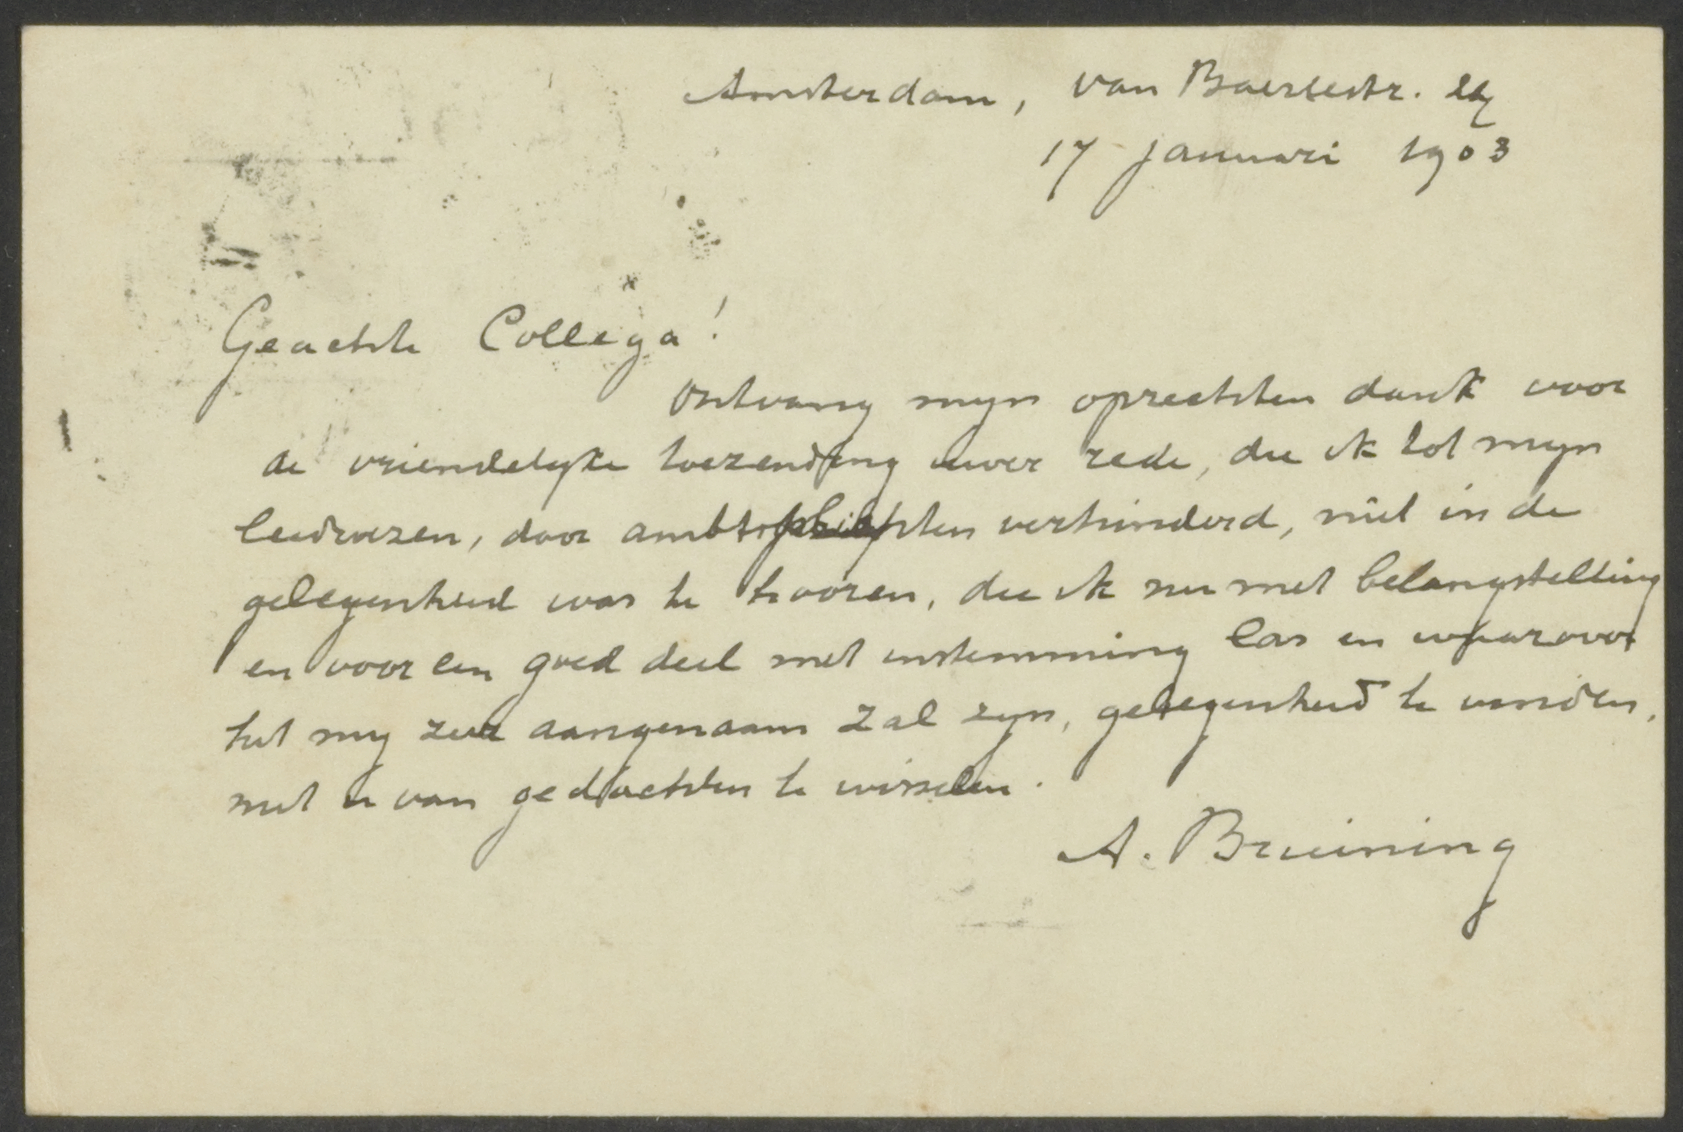 Amsterdam, van Baerlestr.
17 januari 1903
Geachte Collega!
Ontvang mijn oprechten dank voor
de vriendelijke toezending uwer rede, die ik tot mijn
leedwezen, door ambtsplichten verhinderd, niet in de
gelegenheid was te hooren, die ik nu met belangstelling
en voor een goed deel met instemming las en waarover
het mij zeer aangenaam zal zijn, gelegenheid te vinden,
met u van gedachten te wisselen.
A. Bruining